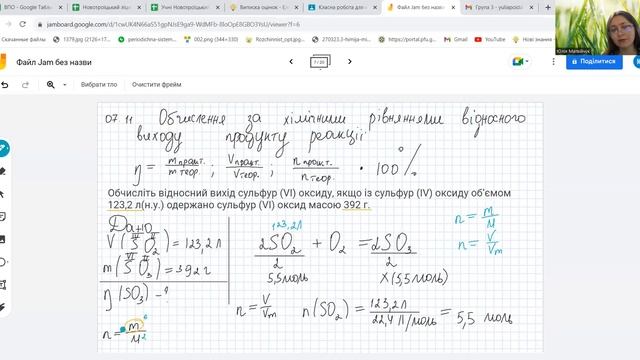 ВПО - Google Табли
Новотроїцький ліцей
Учні Новотроїцько
Виписка оцінок - E
Класна робота для
Файл Jam без назви
Група 3 - yuliapocls
jamboard.google.com/d/1cwUK4N66aS51gpNJsE9ga9-WdMFb-8IoOpE8GBO3YsU/viewer?f=6
Сервисы
1379.jpg (2126×17...
periodichna-sistem...
002.png (344×330)
Rozchinnist_opt.jpg...
270323.3-himija-mi...
https://portal.pfu.g...
Нові знання
Юлія Матвійчук
Файл Jam без назви
7 / 20
Поділитися
Вибрати тло
Очистити фрейм
07 11 Обчислення за хімічними рівняннями відносного
виходу продукту реакції.
η = m практ. / m теор. ; V практ. / V теор. ; n практ. / n теор. · 100%
Обчисліть відносний вихід сульфур (VI) оксиду, якщо із сульфур (IV) оксиду об'ємом
123,2 л(н.у.) одержано сульфур (VI) оксид масою 392 г.
Дано
V(SO2) = 123,2 л
m(SO3) = 392 г
η(SO3) - ?
n = m/M
123,2 л
2SO2 + O2 = 2SO3
2 2
5,5 моль x (5,5 моль)
n = V/Vm n(SO2) = 123,2 л / 22,4 л/моль = 5,5 моль
n = m/M
n = V/Vm